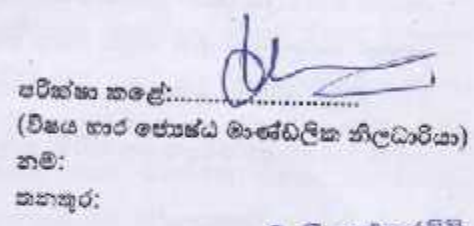 පරීක්ෂා කළේ:..............................
(විෂය භාර ජ්‍යෙෂ්ඨ මාණ්ඩලික නිලධාරියා)
නම:
තනතුර: